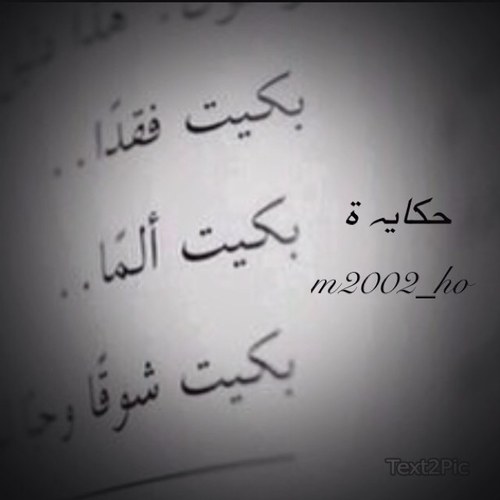 بكيت فقدًا..
بكيت ألمًا..
بكيت شوقًا
حكايہ ة
m2002_ho
Text2Pic